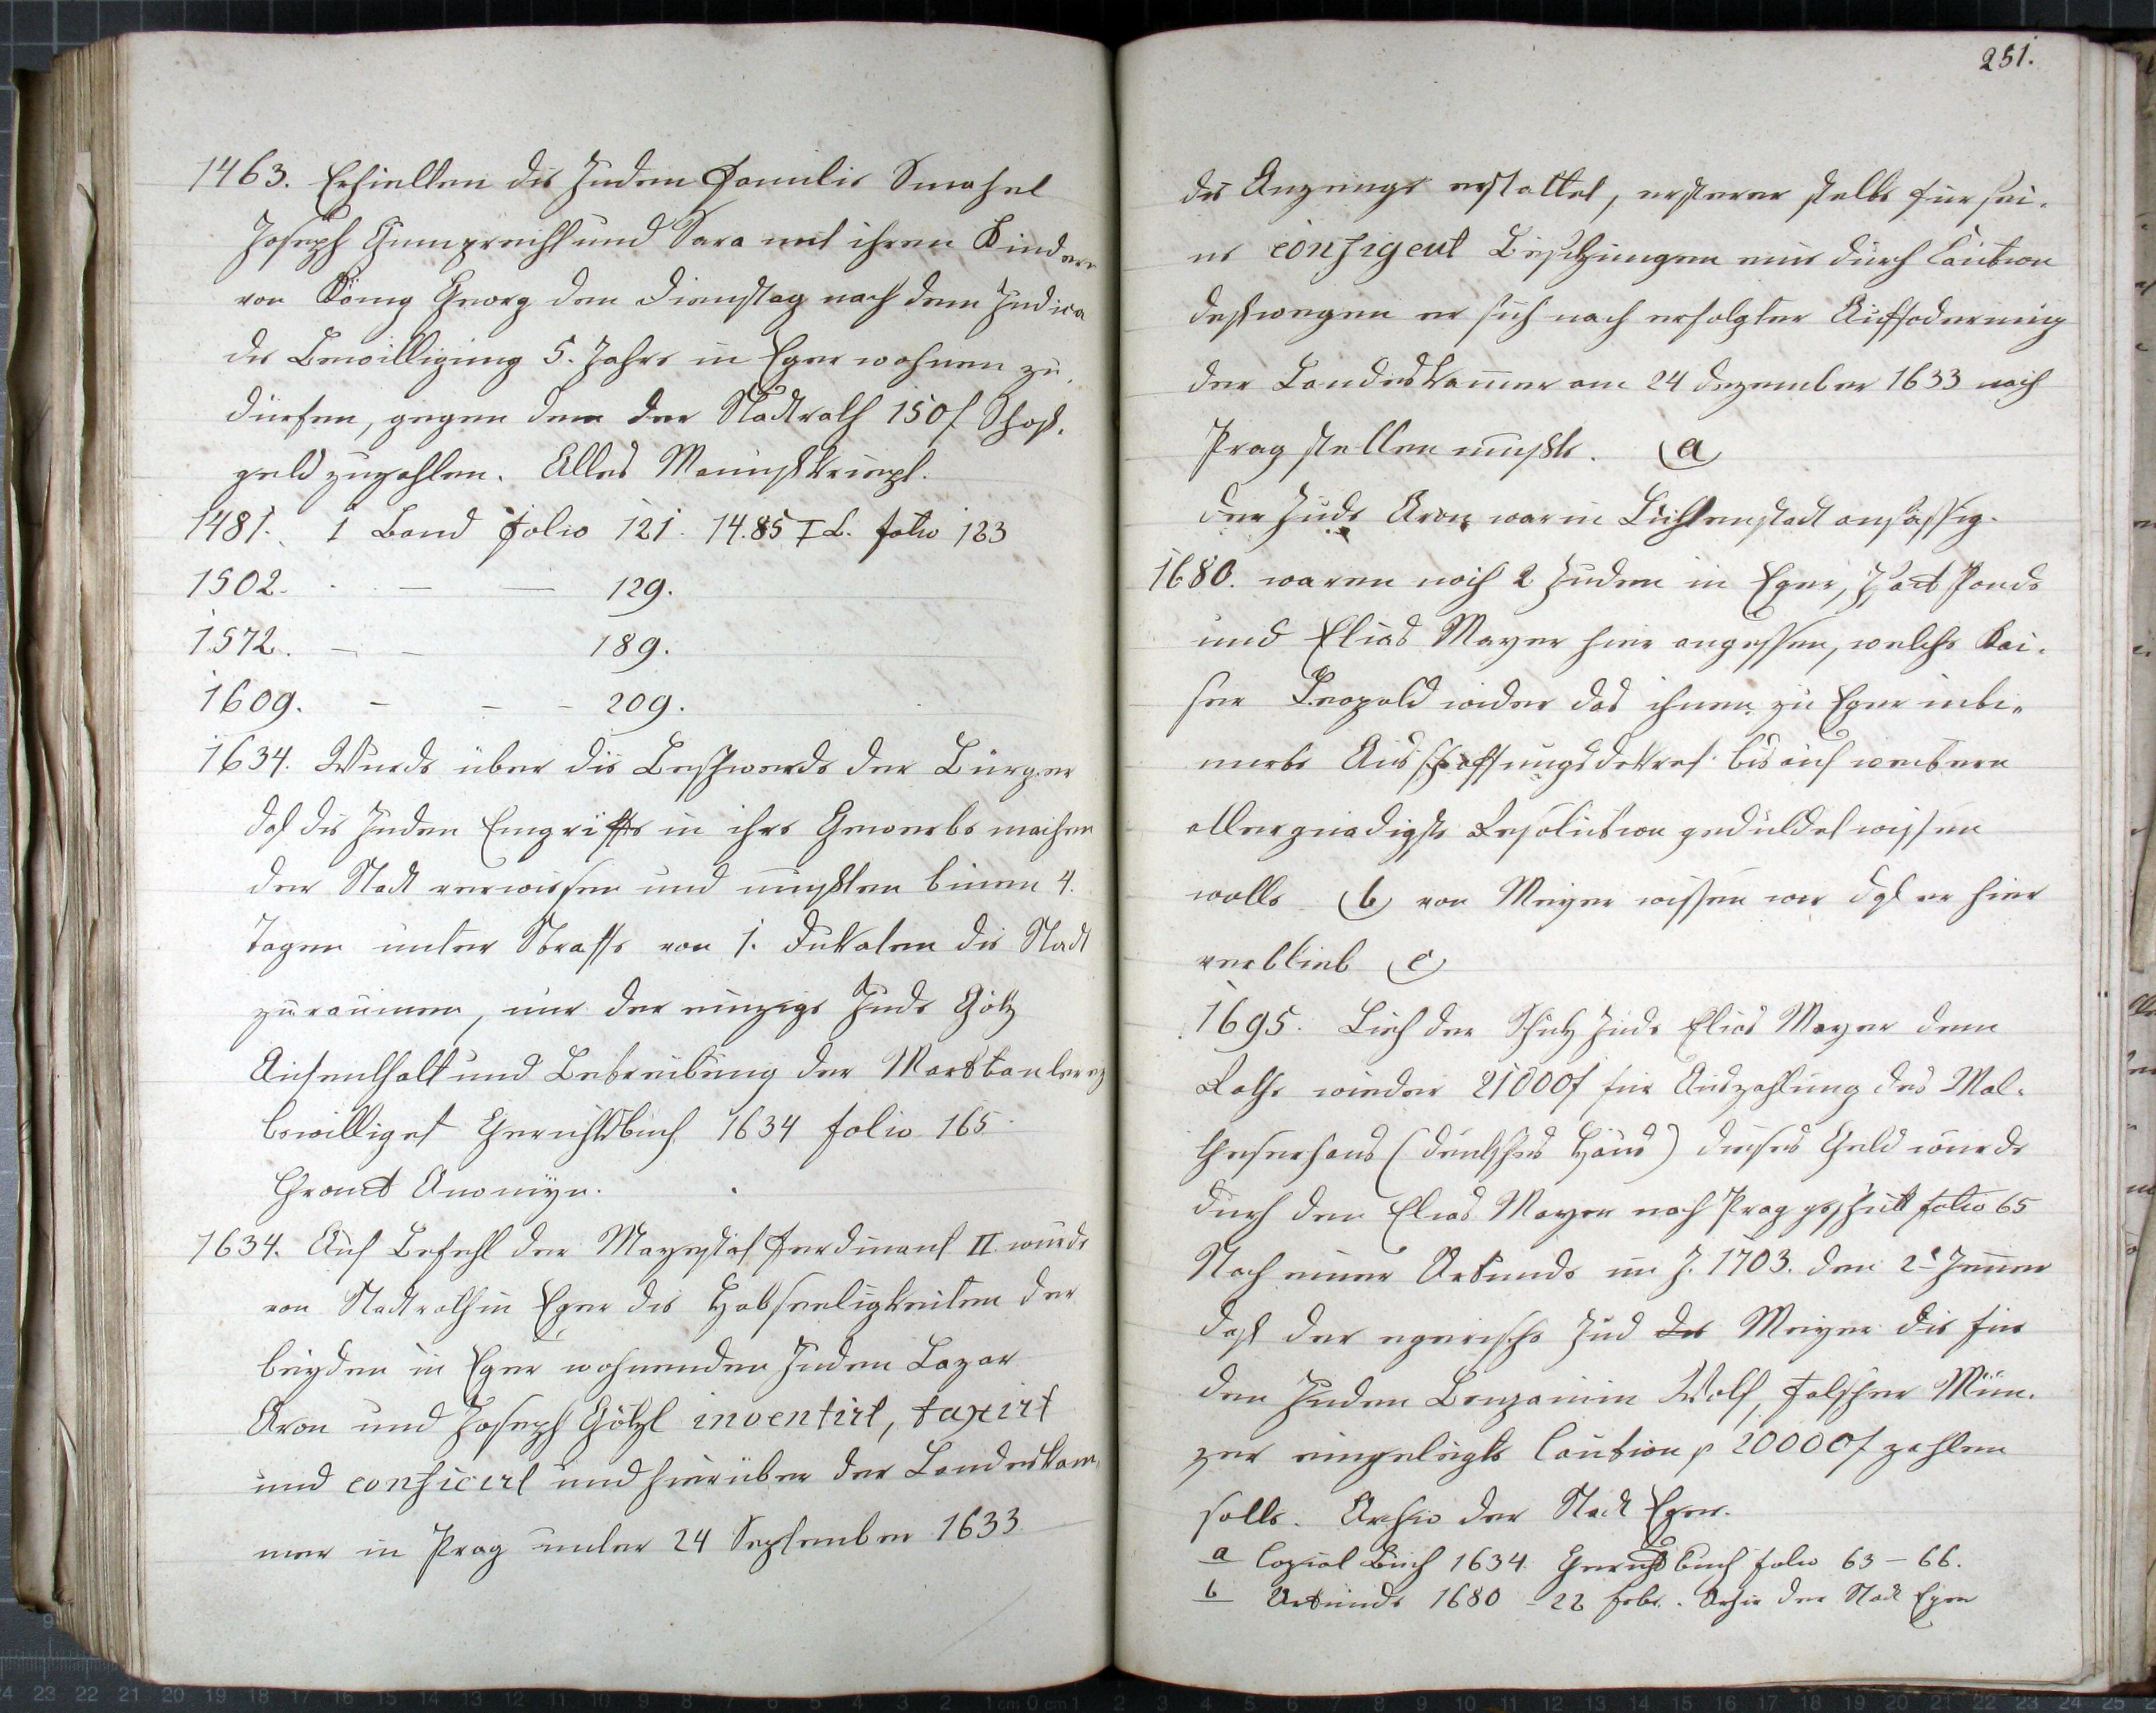 1463. Erhielten die Juden Familie Smohel
Joseph Gumprecht und Sara mit ihren Kindern
von König Georg den Dienstag nach dem Judica
die Bewilligung 5. Jahre in Eger wohnen zu
dürfen, gegen dem der Stadtrath 150 f Schoß-
geld zuzahlen. Altes Manuskript.
1481. 1 Band Folio 121. 1485 I B. folio 123
1502. - — — 129.
1572. — — 189.
1609. - - - 209.
1634. Wurde über die Beschwerde der Bürger
daß die Juden Eingriffe in ihre Gewerbe machen
der Stadt verwiesen und mußten binen 4.
Tagen unter Straffe von 1. Dukaten die Stadt
zu raumen, nur der einzige Jude Götz
Aufenthalt und Betreibung der
bewilliget Gerichtsbuch 1634 folio 165.
Anonÿm.
1634. Auf Befehl der Mayestat Ferdinant II. wurde
von Stadtrath in Eger die Habseeligkeiten der
beyden in Eger wohnenden Juden Lazar
Aron und Joseph Götzl inventirt, taxirt
und conficirt und hierüber der Landeskam-
mer in Prag unter 24 September 1633
251.
die Anzeige erstattet, ersterer stelte für sei-
ne Besitzungen eine durch Caution
deßwegen er sich nach erfolgter Auffoderung
der Landeskamer am 24 Dezember 1633 nach
Prag stellen mußte. (a)
Der Jude Aron war in Lichtenstadt ansässig.
1680. waren noch 2 Juden in Eger,
und Elias Mayer hier angessen, welche Kai-
ser Leopold wider das ihnen zu Eger inti-
mirte Ausschaffungsdekret bis auf weitere
allergnadigste Resolution geduldet wissen
wolle (b) von Meyer wissen wir daß er hier
verblieb (c)
1695. Lieh der Schutz Jude Elias Mayer dem
Rathe wieder 21000 f für Auszahlung des Mal-
theserhaus (deutsches Haus) dieses Geld wurde
durch den Elias Mayer nach Prag geschickt folio 65
Nach einer Urkunde im J. 1703. den 2t Jenner
daß der egerische Jud der Meyer die für
den Juden Benjamin Wolf, falscher Mün-
zer eingelegte Caution p 20000 f zahlen
solle. Archiv der Stadt Eger.
a Copial Buch 1634. Gerichtsbuch folio 63 - 66.
b Urkunde 1680 - 22 febr. Archiv der Stadt Eger